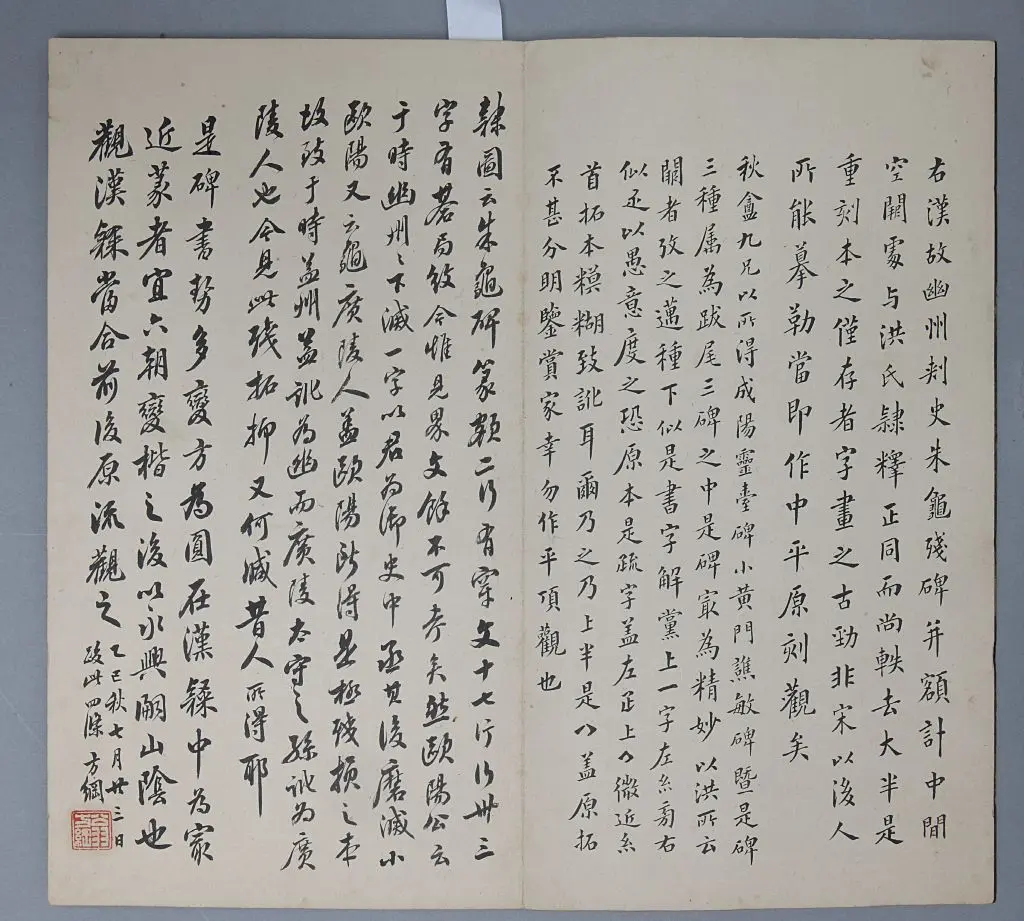 右漢故幽州刺史朱龜殘碑并額計中間
空闕處与洪氏隸釋正同而尚軼去大半是
重刻本之僅存者字畫之古勁非宋以後人
所能摹勒當即作中平原刻觀矣
秋盦九兄以所得成陽靈臺碑小黃門譙敏碑暨是碑
三種属為跋尾三碑之中是碑冣為精妙以洪所云
闕者攷之邁種下似是書字解黨上一字左糸旁右
似𠀍以愚意度之恐原本是疏字盖左𤴓上々微近糸
首拓本糢糊致訛耳爾乃之乃上半是八盖原拓
不甚分明鑒賞家幸勿作平項觀也
隸圖云朱龜碑篆額二行有穿文十七行行卅三
字有碁局紋今惟見界文餘不可考矣然歐陽公云
于時幽州々下滅一字以君為御史中丞其後磨滅小
歐陽又云龜廣陵人盖歐陽所得是極殘損之本
故致于時益州益訛為幽而廣陵太守之孫訛為廣
陵人也今見此殘拓抑又何減昔人所得耶
是碑書勢多變方為圓在漢隸中為冣
近篆者宜六朝變楷之後以永興嗣山陰也
觀漢隸當合前後原流觀之
乙巳秋七月廿三日
跋此四條 方綱